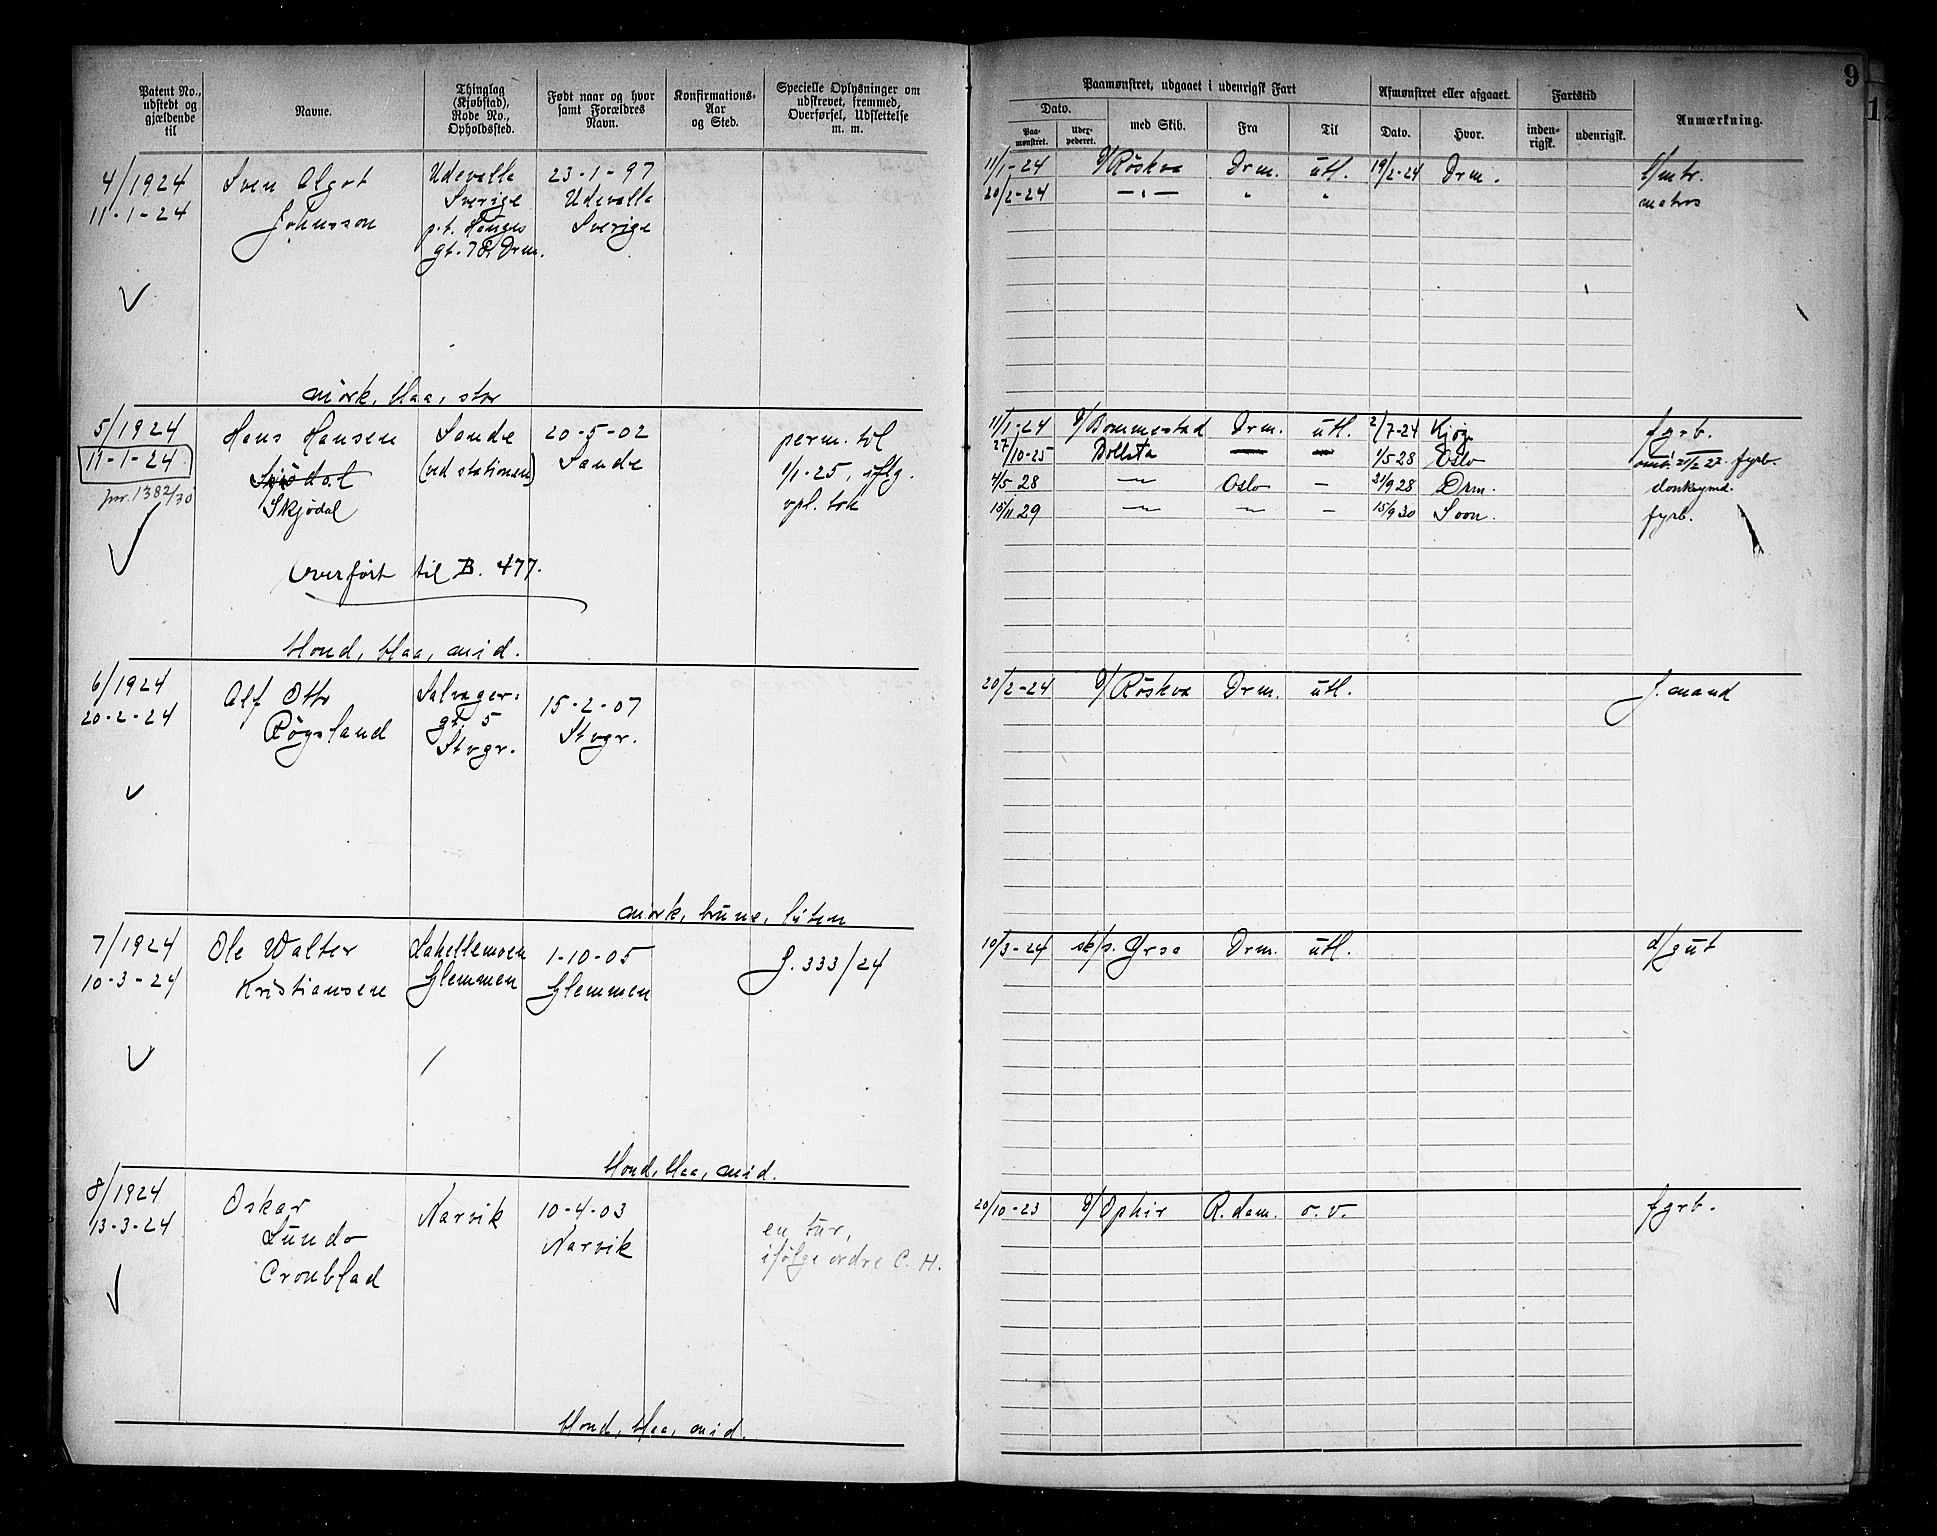 Patent No., udstedt og gjældende til
Navne.
Thinglag (Kjøbstad), Rode No., Opholdssted.
Født naar og hvor samt Forældres Navn.
Konfirmations- Aar og Sted.
Specielle Oplysninger om udskrevet, fremmed, Overførsel, Udslettelse m. m.
4/1924
11-1-24
Sven Algot
Johnsson
Udevalla
Sverige
p.t. Hauges
gt. 7 Drm.
23-1-97
Udevalla
Sverige
mörk, blaa, stor
5/1924
11-1-24.
jnr. 1382/30
Hans Hansen
Skjødal
Sande
(ved stationen)
20-5-02
Sande
perm. til
1/1-25, iflg.
opl. tok
Overført til B. 477.
blond, blaa, mid.
6/1924
20-2-24
Alf Otto
Røgsland
Salvager-
gt. 5
Stvgr.
15-2-07
Stvgr.
mörk, brune, liten
7/1924
10-3-24
Ole Walter
Kristiansen
Lahellemoen
Glemmen
1-10-05
Glemmen
J. 333/24
blond, blaa, mid.
8/1924
13-3-24
Oskar
Lundo
Cronblad
Narvik
10-4-03
Narvik
en tur,
ifølge ordre C. H.
blond, blaa, mid.
9
12
Paamønstret, udgaaet i udenrigsk Fart
Afmønstret eller afgaaet.
Fartstid
Anmærkning.
Dato.
med Skib.
Fra
Til
Dato.
Hvor.
inden- rigsk.
udenrigsk.
Paa- mønstret.
Uder- pederet.
11/1-24 D/Röskva Drm. utl. 19/2-24 Drm. l/mtr.
20/2-24 — „ — " " matros
11/1-24 D/Bommestad Drm. utl. 2/7-24 Kjøge fyrb.
27/10-25 Bollsta — — 1/5 28 Oslo 21/2 27. fyrb.
4/5 28 —„— Oslo — 21/9 28 Drm. donkeymd.
15/11 29 —„— —„— — 15/9 30 Soon. fyrb.
20/2-24 D/Röskva Drm. utl. J. mand
10/3-24 sk/s. Yrsa Drm. utl. d/gut
20/10-23 D/Ophir R.dam. o.v. fyrb.